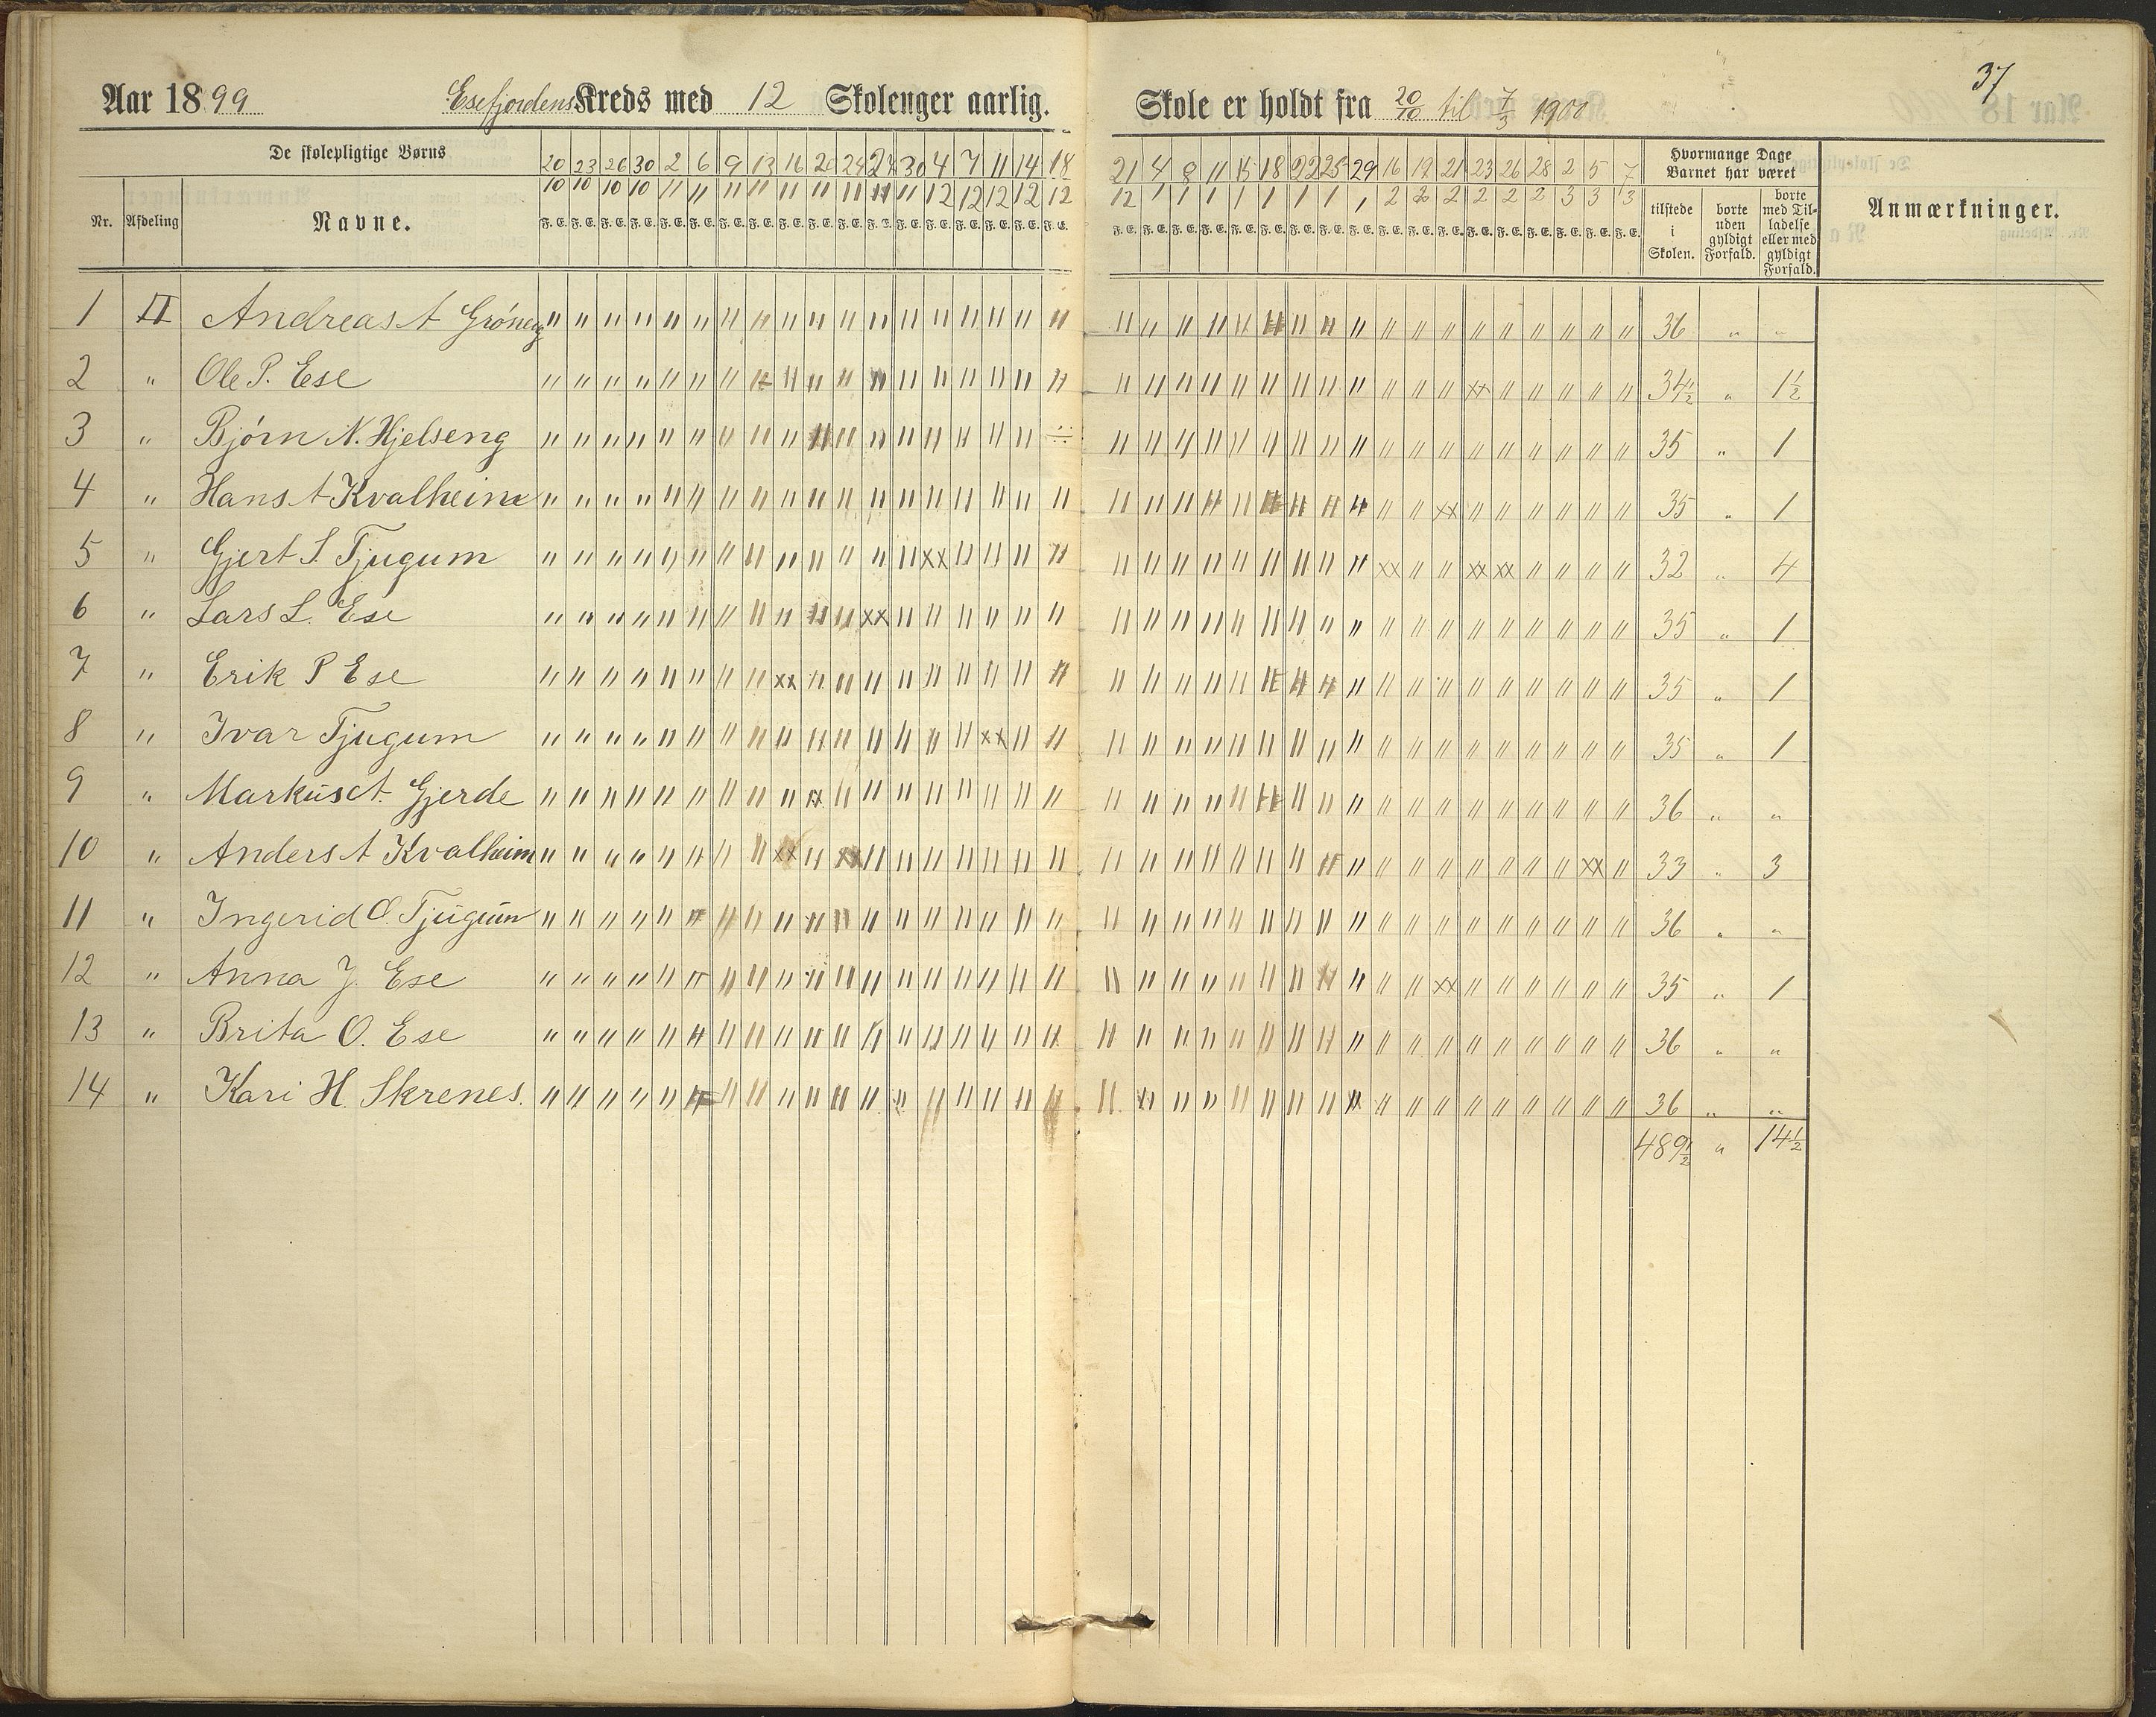 37
Aar 1899 Esefjordens Kreds med 12 Skolenger aarlig. Skole er holdt fra 20/10 til 7/3 1900
De skolepligtige Børns 20 23 26 30 2 6 9 13 16 20 24 27 30 4 7 11 14 18 21 4 8 11 15 18 22 25 29 16 19 21 23 26 28 2 5 7 Hvormange Dage Barnet har været
10 10 10 10 11 11 11 11 11 11 11 11 11 12 12 12 12 12 12 1 1 1 1 1 1 1 1 2 2 2 2 2 2 3 3 3
Nr. Afdeling Navne. F. E. tilstede i Skolen. borte uden gyldigt Forfald. borte med Tilladelse eller med gyldigt Forfald. Anmærkninger.
1 II Andreas A Grøneng 36 " "
2 " Ole P. Ese 34 1/2 " 1 1/2
3 " Bjørn N. Hjelseng 35 " 1
4 " Hans A Kvalheim 35 " 1
5 " Gjert S. Tjugum 32 " 4
6 " Lars L. Ese 35 " 1
7 " Erik P Ese 35 " 1
8 " Ivar Tjugum 35 " 1
9 " Markus A. Gjerde 36 " "
10 " Anders A Kvalheim 33 " 3
11 " Ingerid O. Tjugum 36 " "
12 " Anna J. Ese 35 " 1
13 " Brita O. Ese 36 " "
14 " Kari H. Skrenes. 36 " "
489 1/2 " 14 1/2